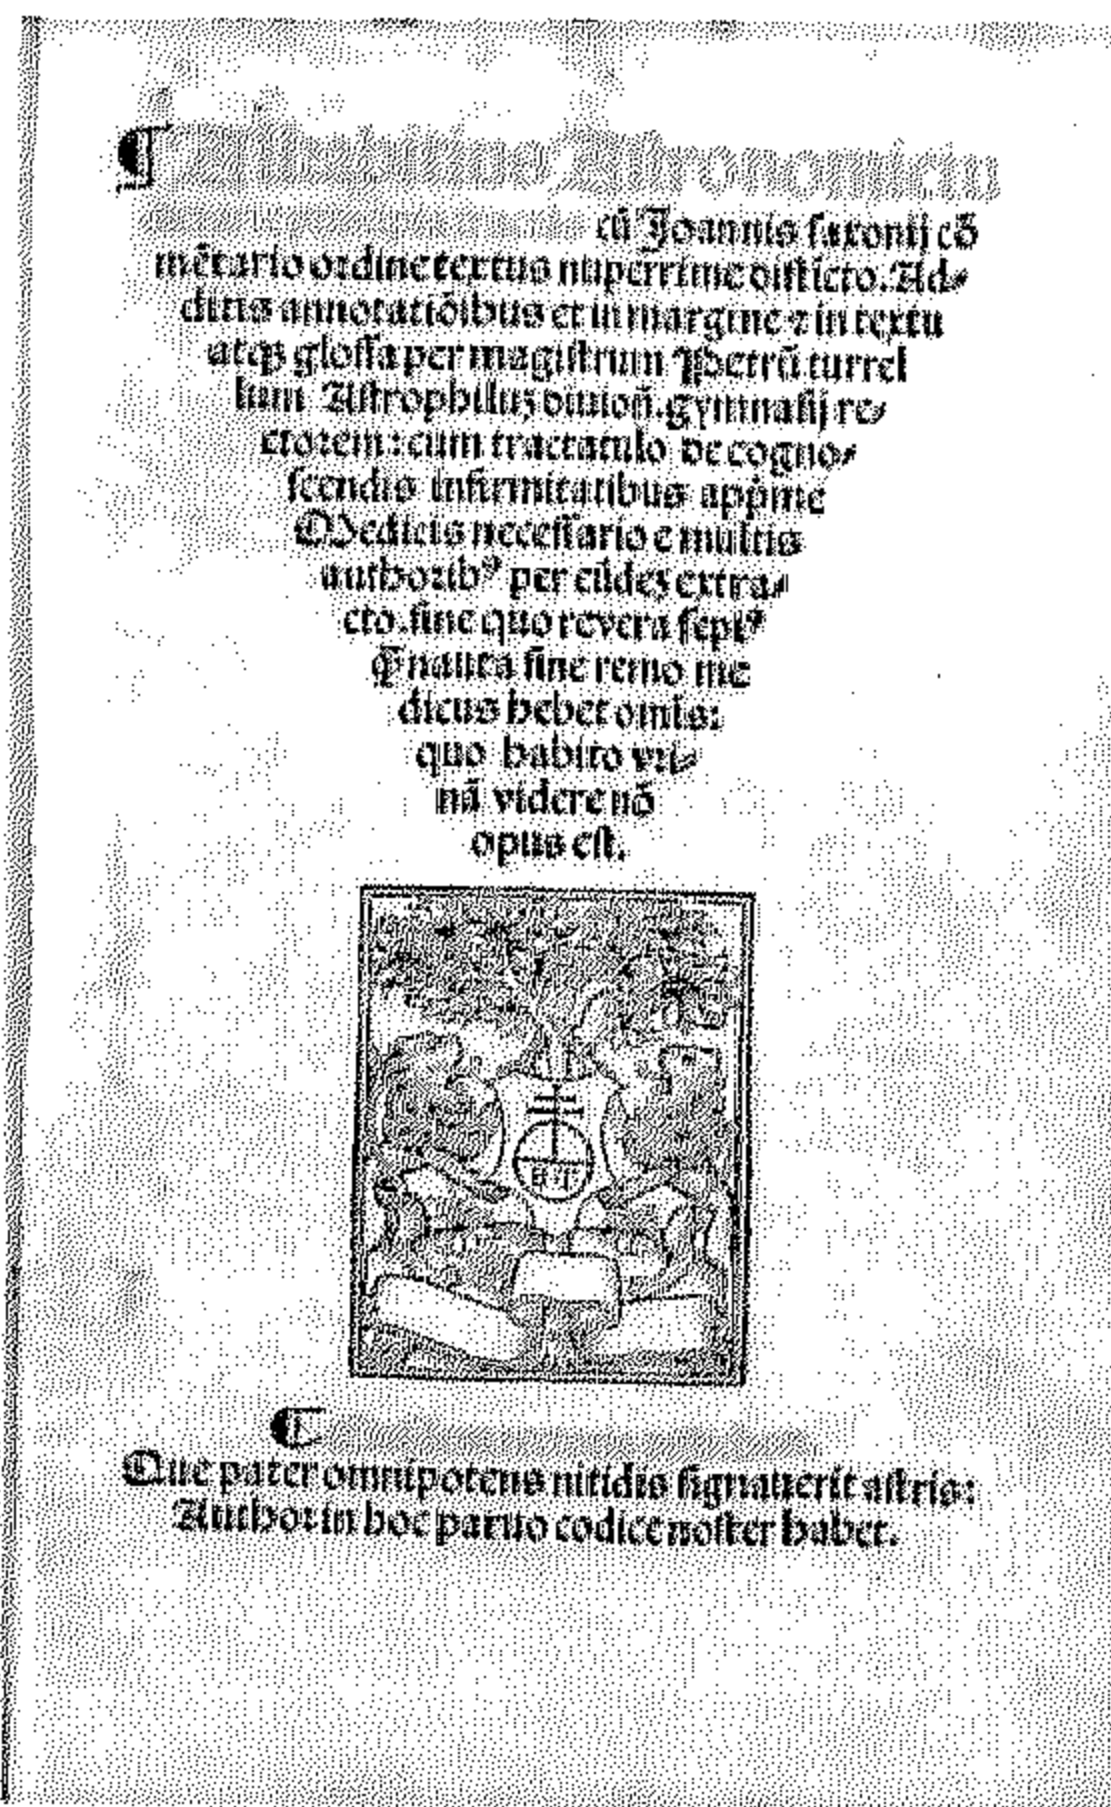 ¶ Alkabitius Astronomicus
cū Joannis ſaxonij cō
mētario ordine textus nuperrime diſticto. Ad⸗
ditis annotatiōibus et in margine ⁊ in textu
atqꝫ gloſſa per magiſtrum Petrū turrel
lum Aſtrophiluꝫ diuioñ. gymnaſij re⸗
ctorem: cum tractatulo de cogno⸗
ſcendis infirmitatibus app̄me
Medicis neceſſario e multis
authoribꝰ per eūdeꝫ extra⸗
cto. ſine quo revera ſepiꝰ
q̄ nauta ſine remo me
dicus hebet omīs:
quo habito vri⸗
nā videre nō
opus eſt.
H T
¶
Que pater omnipotens nitidis ſignauerit aſtris:
Author in hoc paruo codice noſter habet.